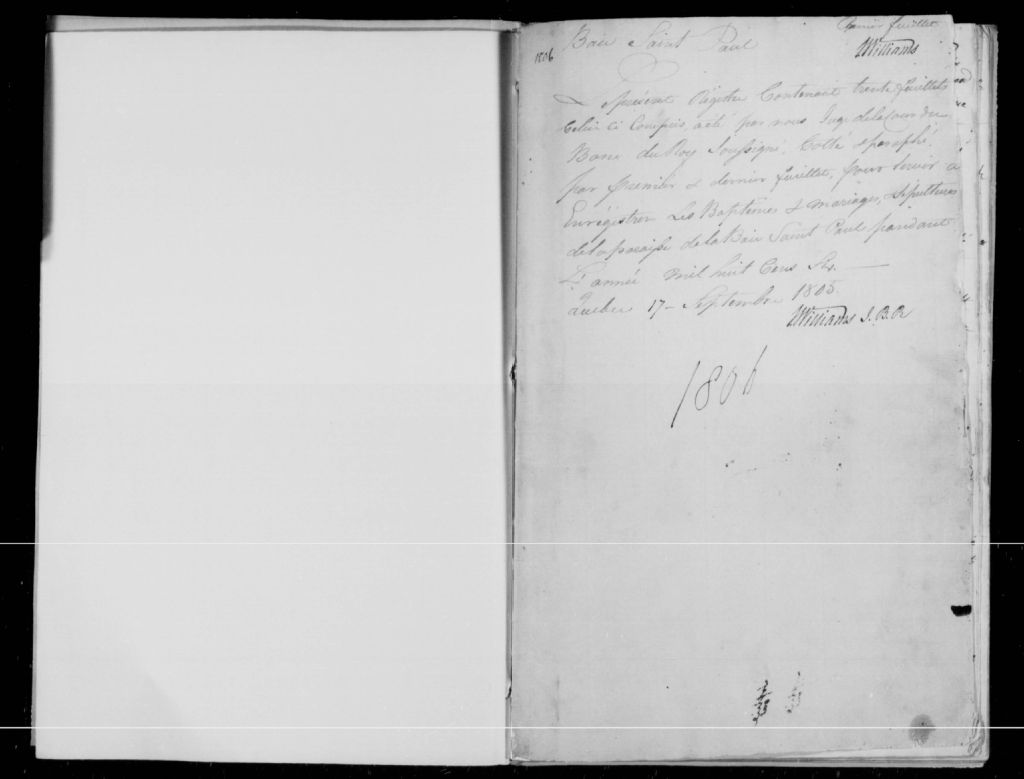 1806
Baie Saint Paul
Premier feuillet
Williams
Le présent Régistre Contenant trente feuillets
Celui ci Compris, a été par nous Juge de la Cour du
Banc du Roy Soussigné, Cotté & paraphé
par premier & dernier feuillet, pour servir a
Enrégistrer Les Baptêmes & mariages, & sépultures
de la paroisse de la Baie Saint Paul pendant
L'année mil huit Cens Six.
Quebec 17 - Septembre 1805.
Williams J.B.R
1806